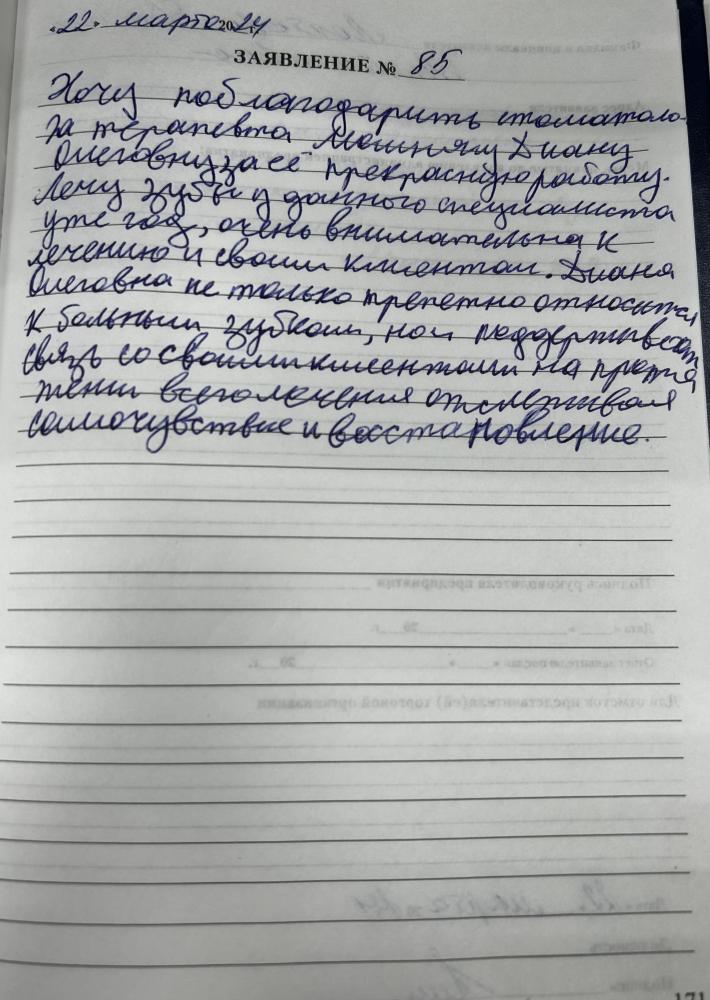 «22» марта 2024
ЗАЯВЛЕНИЕ № 85
Хочу поблагодарить стоматоло-
га терапевта Диану
Олеговну за её прекрасную работу.
Лечу зубы у данного специалиста
уже год, очень внимательна к
лечению и своим клиентам. Диана
Олеговна не только трепетно относится
к больным зубкам, но и поддерживает
связь со своими клиентами на протя
жении всего лечения отслеживая
самочувствие и восстановление.
171